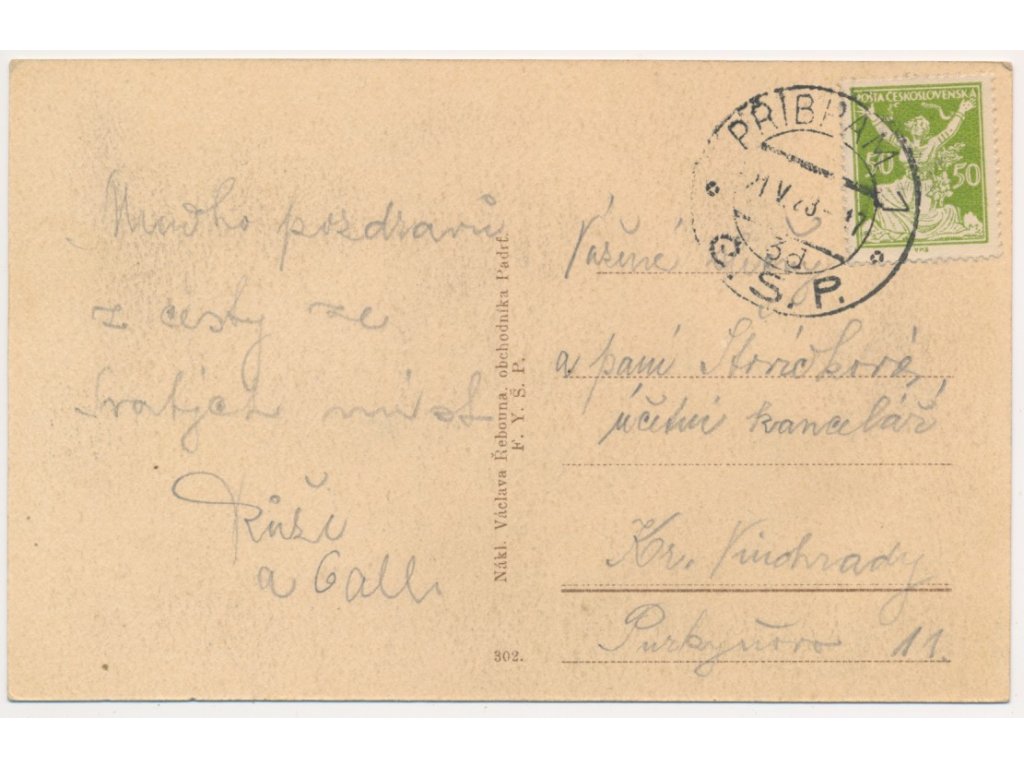 Mnoho pozdravů
z cesty ze
Svatých míst
Růži
a Galli
Nákl. Václava Řebouna, obchodníka Padrť.
F. Y. Š. P.
302.
POŠTA ČESKOSLOVENSKÁ
50 50
PŘÍBRAM 7
V. 23
3d
Č. S. P.
Vážené
a paní
účetní kancelář
Kr. Vinohrady
Purkyňovo 11.